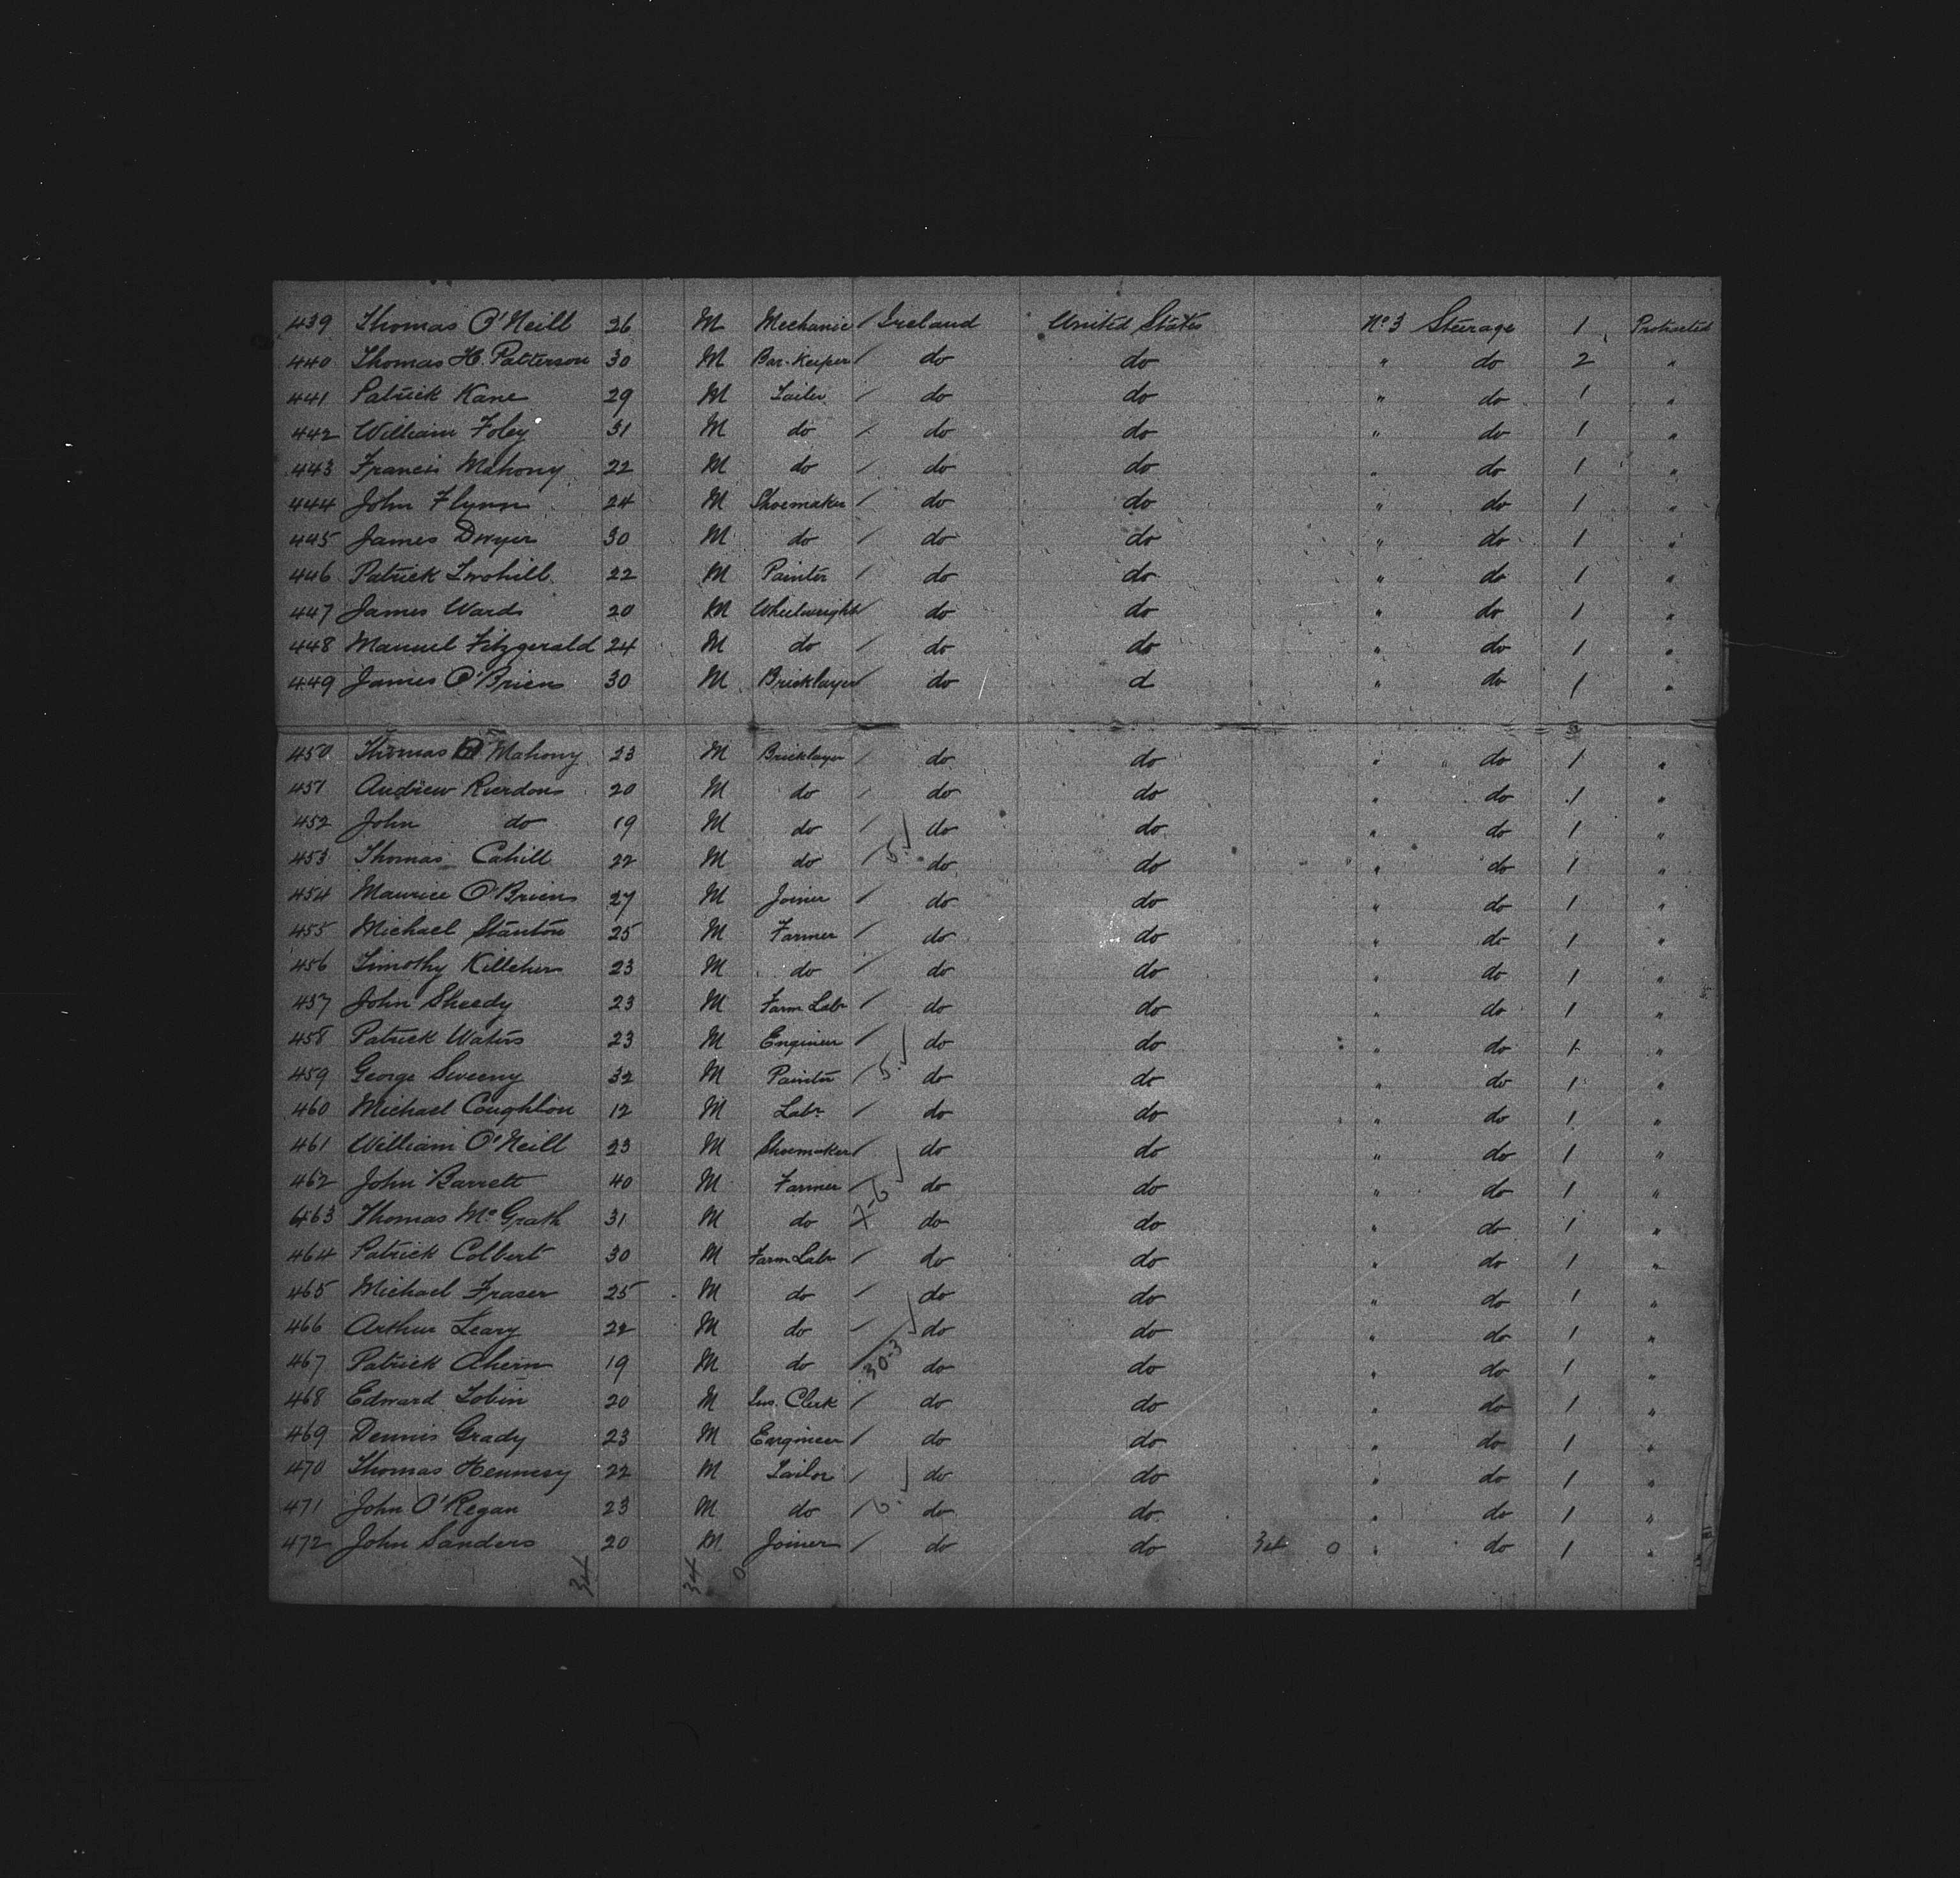 439 Thomas O'Neill 26 M Mechanic / Ireland United States No 3 Steerage 1 Protracted
440 Thomas H. Patterson 30 M Bar-Keeper / do do " do 2 "
441 Patrick Kane 29 M Tailor / do do " do 1 "
442 William Foley 31 M do / do do " do 1 "
443 Francis Mahony 22 M do / do do " do 1 "
444 John Flynn 24 M Shoemaker / do do " do 1 "
445 James Dwyer 30 M do / do do " do 1 "
446 Patrick Twohill 22 M Painter / do do " do 1 "
447 James Ward 20 M Wheelwright / do do " do 1 "
448 Manuel Fitzgerald 24 M do / do do " do 1 "
449 James O'Brien 30 M Bricklayer / do d " do 1 "
450 Thomas Mahony 23 M Bricklayer / do do " do 1 "
451 Andrew Rierdon 20 M do / do do " do 1 "
452 John do 19 M do / do do " do 1 "
453 Thomas Cahill 22 M do / 5. do do " do 1 "
454 Maurice O'Brien 27 M Joiner / do do " do 1 "
455 Michael Stanton 25 M Farmer / do do " do 1 "
456 Timothy Killeher 23 M do / do do " do 1 "
457 John Sheedy 23 M Farm Labr / do do " do 1 "
458 Patrick Waters 23 M Engineer / do do " do 1 "
459 George Sweeny 32 M Painter / 5. do do " do 1 "
460 Michael Coughlin 12 M Labr / do do " do 1 "
461 William O'Neill 23 M Shoemaker / do do " do 1 "
462 John Barrett 40 M Farmer / do do " do 1 "
463 Thomas McGrath 31 M do / 7-6 do do " do 1 "
464 Patrick Colbert 30 M Farm Labr / do do " do 1 "
465 Michael Fraser 25 M do / do do " do 1 "
466 Arthur Leary 22 M do / do do " do 1 "
467 Patrick Ahern 19 M do / 30-3 do do " do 1 "
468 Edward Tobin 20 M Clerk / do do " do 1 "
469 Dennis Grady 23 M Engineer / do do " do 1 "
470 Thomas Hennesy 22 M Tailor / do do " do 1 "
471 John O'Regan 23 M do / 6. do do " do 1 "
472 John Sanders 20 M Joiner / do do 34 0 " do 1 "
34 34 0